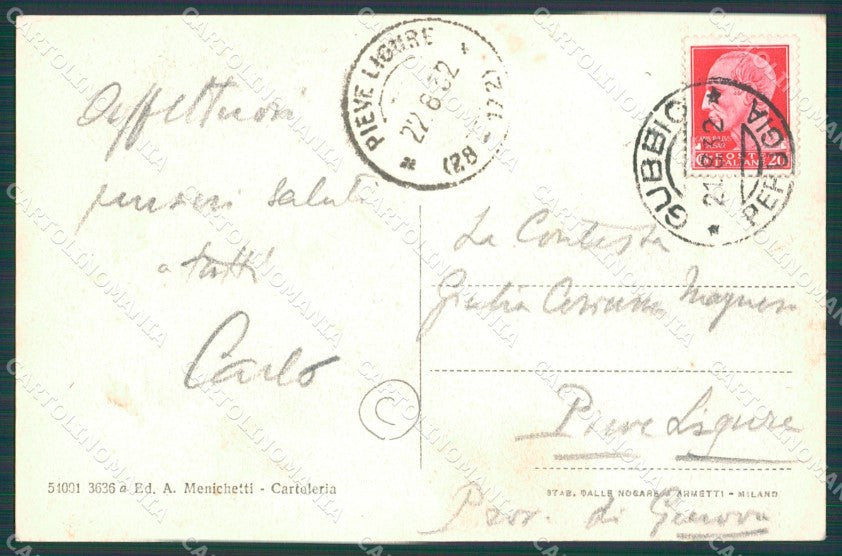 Affettuosi
pensieri saluti
a tutti
Carlo
51091 3636 a Ed. A. Menichetti - Cartoleria
PIEVE LIGURE
22.6.32
(28-172)
GUBBIO
21.6.32
PERUGIA
POSTE
ITALIANE
20
La Contessa
Giulia
Pieve Ligure
Prov. di Genova
STAB. DALLE NOGARE & ARMETTI - MILANO
©
CARTOLINOMANIA